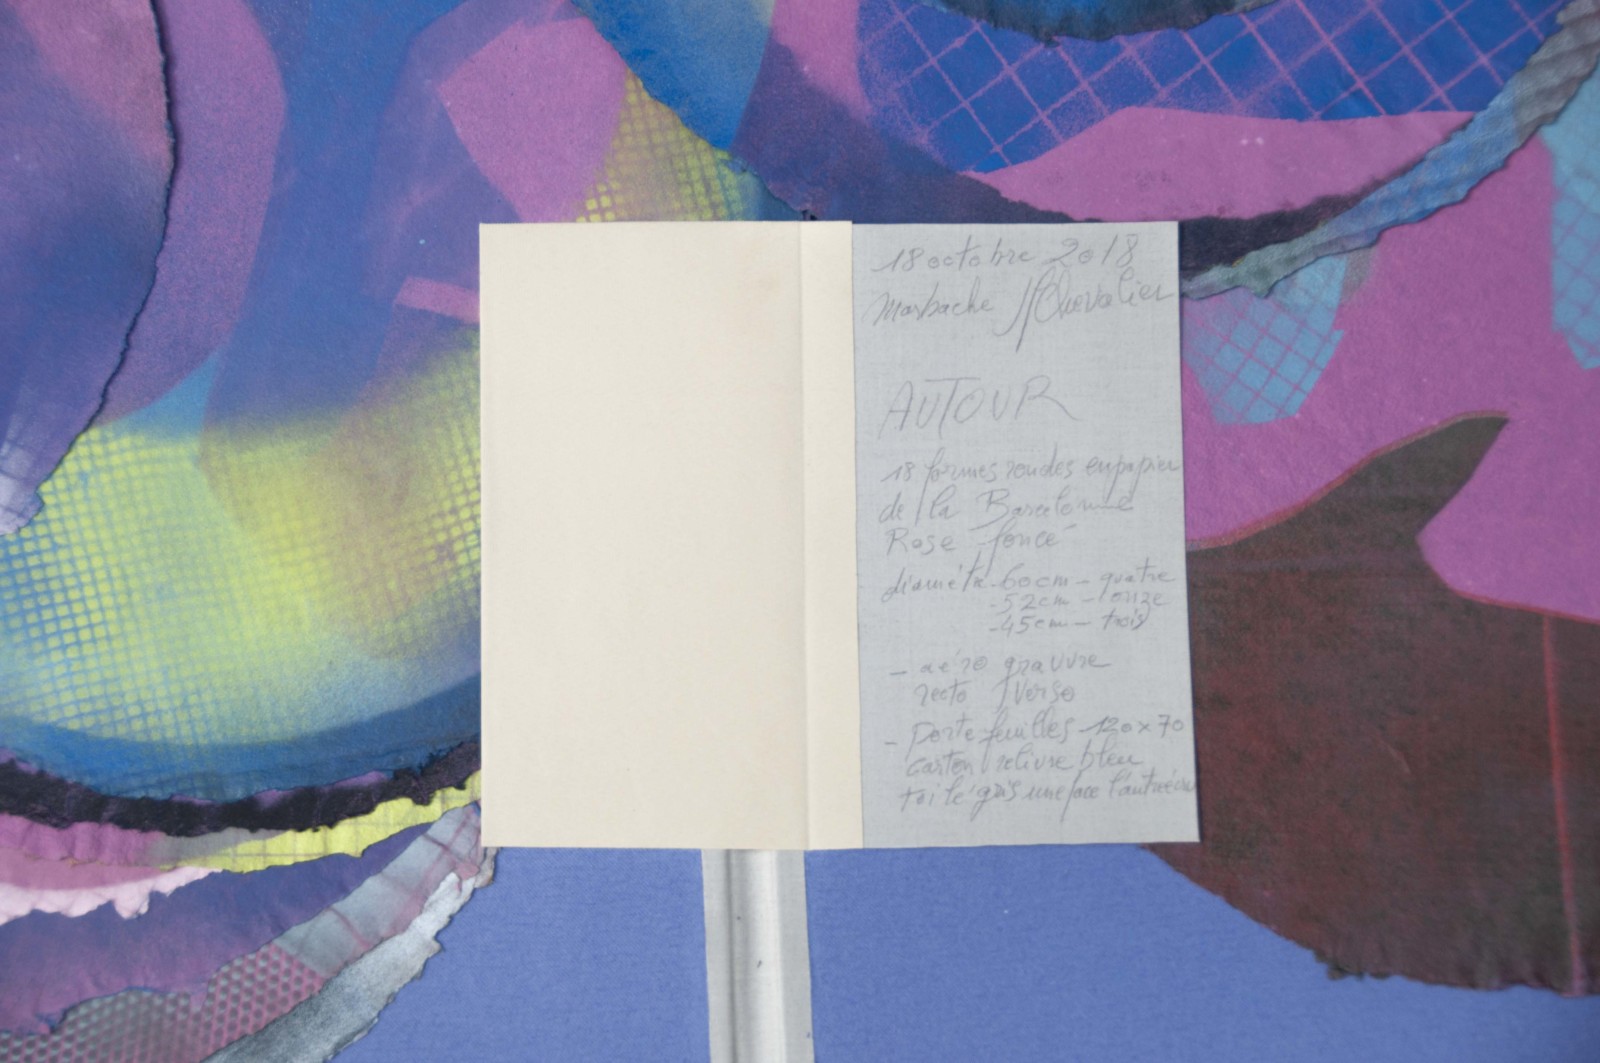 18 octobre 2018
Marbache JfChevalier
AUTOUR
18 formes rondes en papier
de la Barcelonne
Rose foncé
diamèt. 60 cm - quatre
- 52 cm - onze
- 45 cm - trois
- aéro gravure
recto verso
- Porte feuilles 120 x 70
Carton relivre bleu
toilé gris une face l'autre écru